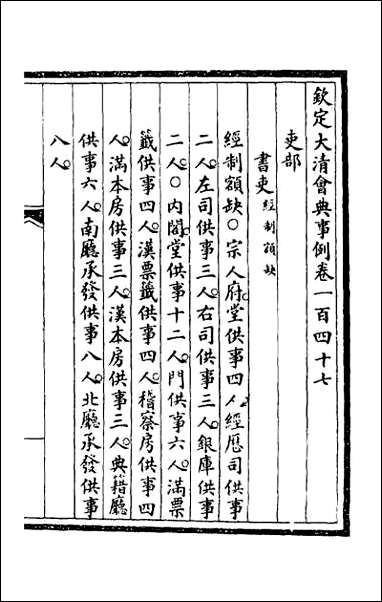 欽定大清會典事例卷一百四十七
吏部
書吏經制額缺
經制額缺○宗人府堂供事四人經歷司供事
二人左司供事三人右司供事三人銀庫供事
二人○內閣堂供事十二人門供事六人滿票
籤供事四人漢票籤供事四人稽察房供事四
人滿本房供事三人漢本房供事三人典籍廳
供事六人南廳承發供事八人北廳承發供事
八人